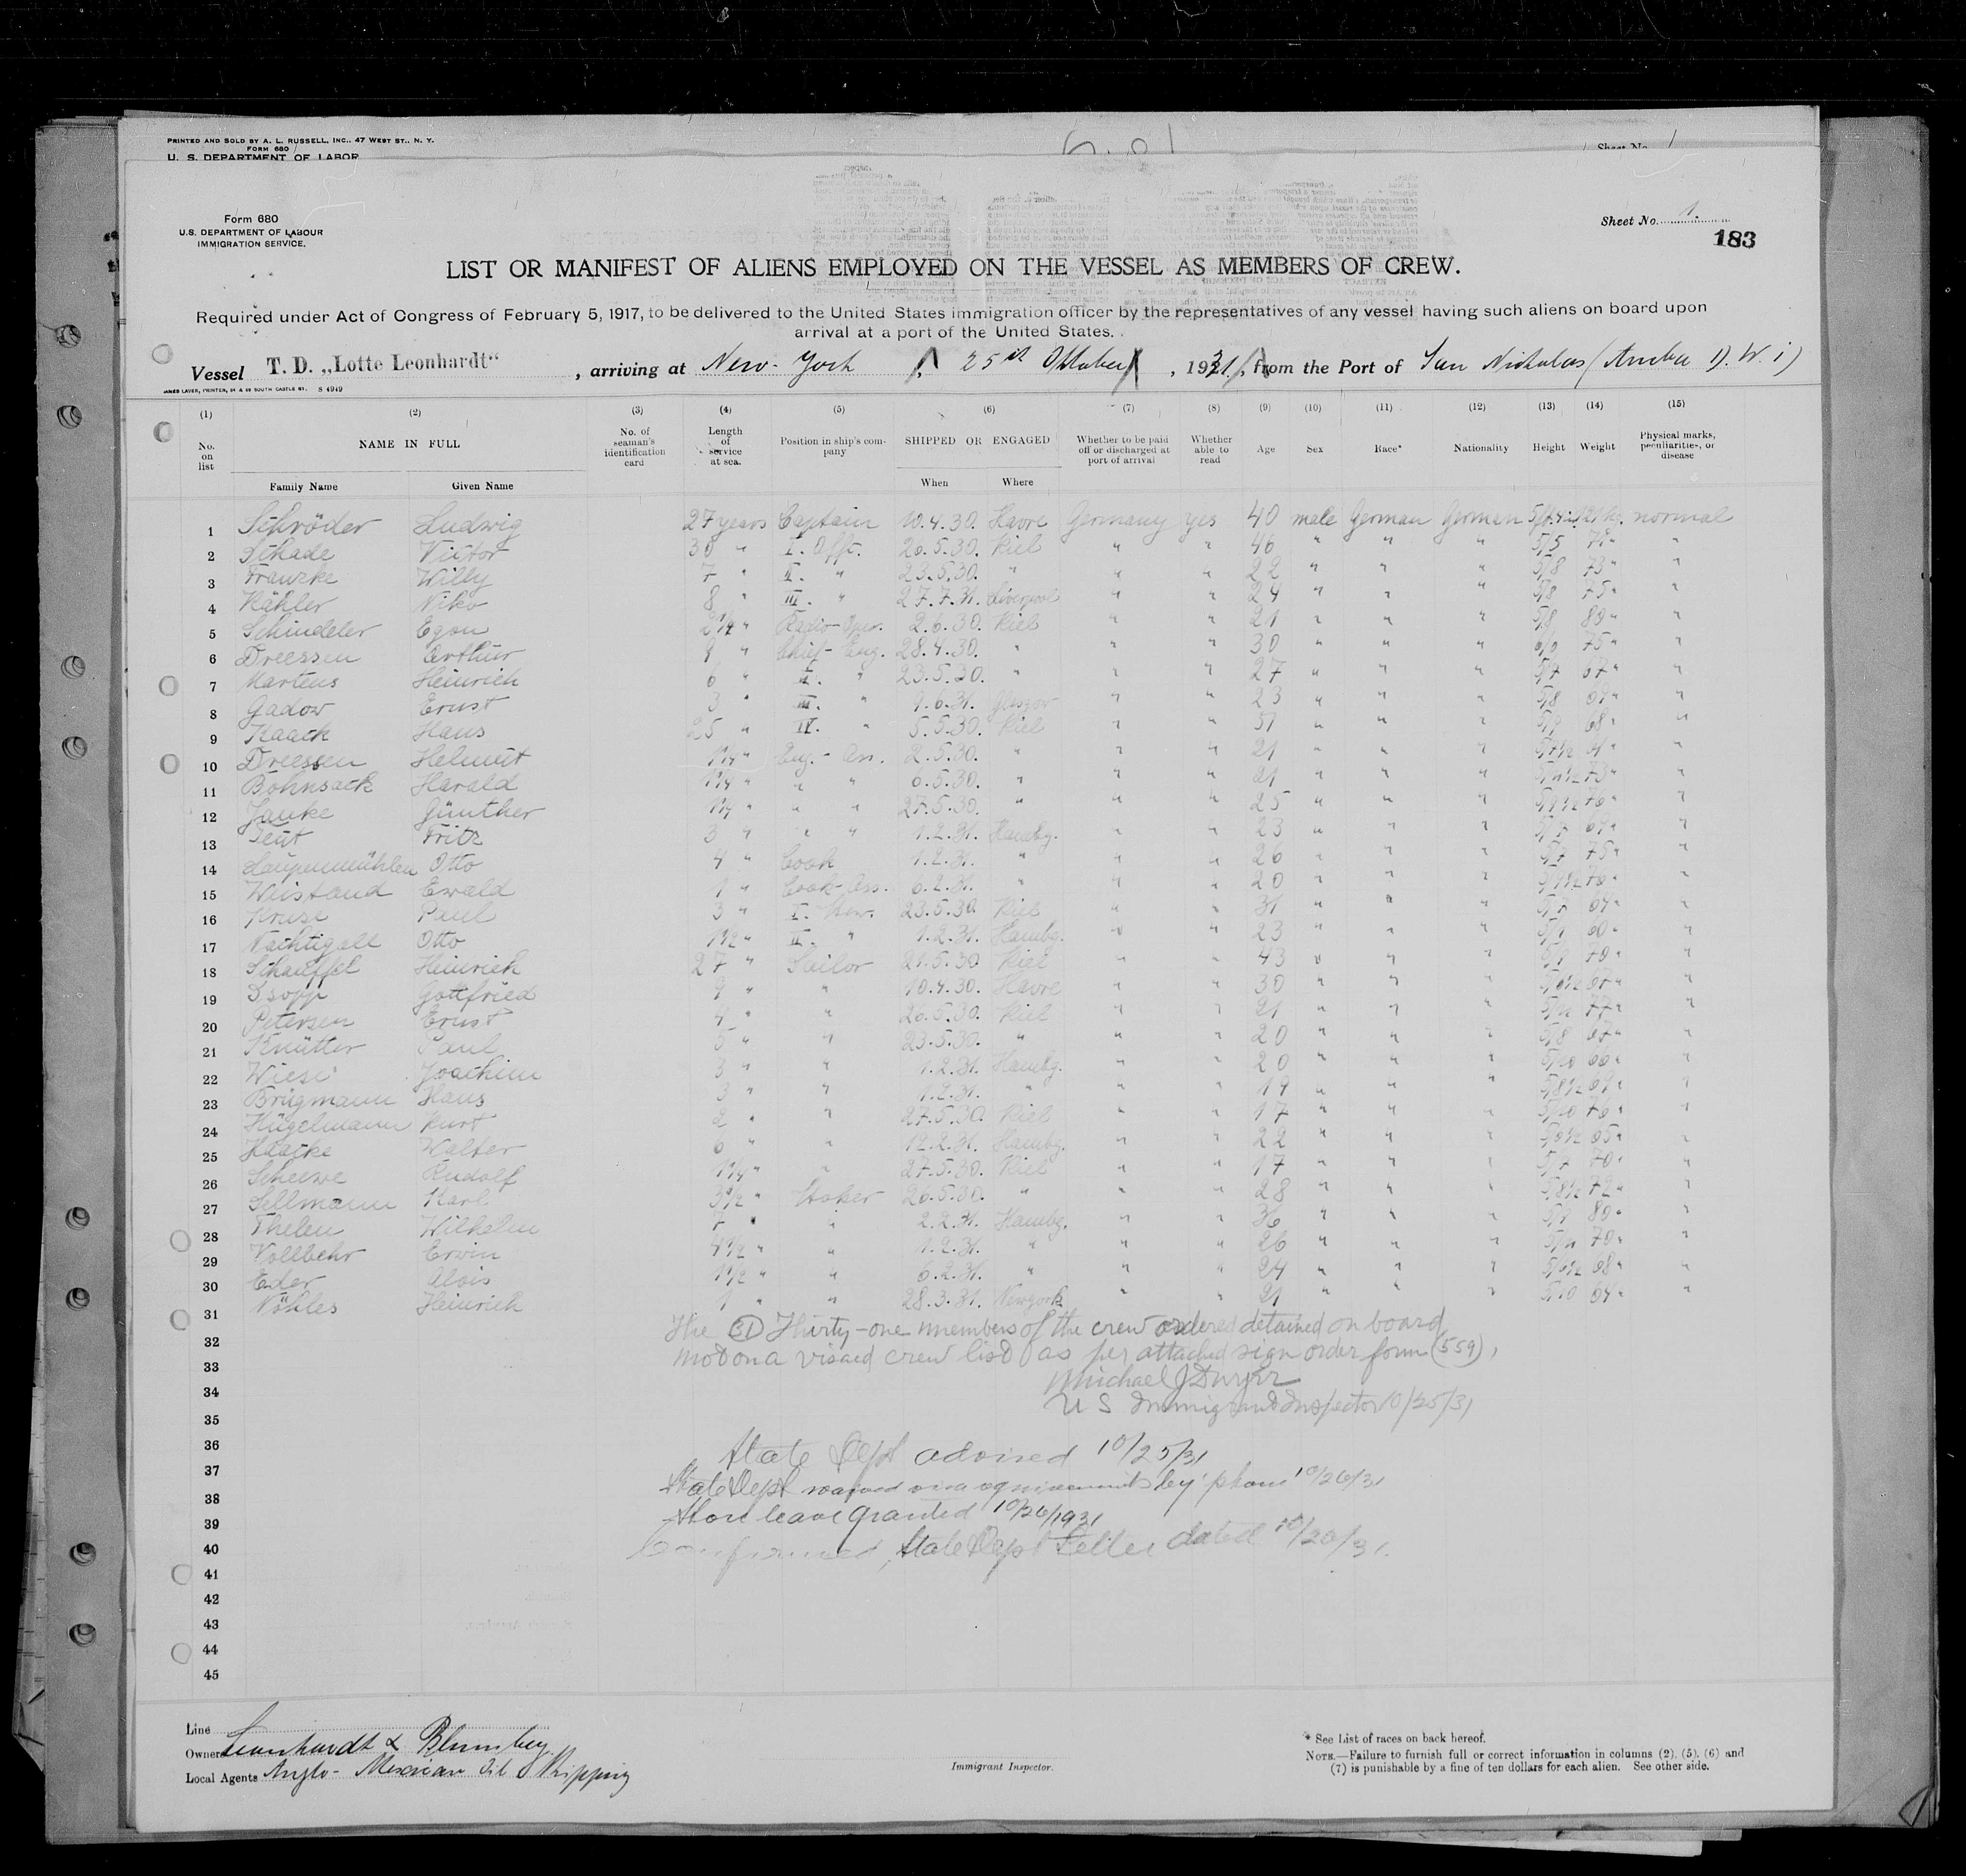 PRINTED AND SOLD BY A. L. RUSSELL, INC., 47 WEST ST., N. Y.
FORM 680
U. S. DEPARTMENT OF LABOR
Sheet No. 1
Form 680
U.S. DEPARTMENT OF LABOUR
IMMIGRATION SERVICE.
Sheet No. 1.
183
LIST OR MANIFEST OF ALIENS EMPLOYED ON THE VESSEL AS MEMBERS OF CREW.
Required under Act of Congress of February 5, 1917, to be delivered to the United States immigration officer by the representatives of any vessel having such aliens on board upon
arrival at a port of the United States.
Vessel T. D. „Lotte Leonhardt“, arriving at New-York, 25th Oktober, 1931, from the Port of San Nicholas (Aruba D. W. i)
JAMES LAVER, PRINTER, SOUTH CASTLE ST. S 4949
(1) (2) (3) (4) (5) (6) (7) (8) (9) (10) (11) (12) (13) (14) (15)
No. on list NAME IN FULL No. of seaman's identification card Length of service at sea. Position in ship's company SHIPPED OR ENGAGED Whether to be paid off or discharged at port of arrival Whether able to read Age Sex Race* Nationality Height Weight Physical marks, peculiarities, or disease
Family Name Given Name When Where
1 Schröder Ludwig 27 years Captain 10.4.30. Havre Germany yes 40 male German German normal
2 Schade Victor 30 " I. Offc. 26.5.30. Kiel " " 46 " " " 5/5 "
3 Franzke Willy 7 " II. " 23.5.30. " " " 22 " " " 5/8 73 " "
4 Kähler Niko 8 " III. " 27.7.31. Liverpool " " 24 " " " 5/8 75 " "
5 Schindeler Egon 2¼ " Radio-Oper. 2.6.30. Kiel " " 21 " " " 5/8 80 " "
6 Dreessen Arthur 9 " Chief-Eng. 28.4.30. " " " 30 " " " 6/0 75 " "
7 Martens Heinrich 6 " II. " 23.5.30. " " " 27 " " " 5/7 67 " "
8 Gadow Ernst 3 " III. " 1.6.31. Glasgow " " 23 " " " 5/8 "
9 Kaack Hans 25 " IV. " 5.5.30. Kiel " " 51 " " " 5/9 68 " "
10 Dreessen Helmut 1¼ " Eng.-Ass. 2.5.30. " " " 21 " " " 5/7½ "
11 Bohnsack Harald 1¼ " " " 6.5.30. " " " 21 " " " 73 " "
12 Janke Günther 1¼ " " " 27.5.30. " " " 25 " " " 76 " "
13 Teut Fritz 3 " " " 1.2.31. Hambg. " " 23 " " " 5/7 "
14 Otto 4 " Cook 1.2.31. " " " 26 " " " 5/7 75 " "
15 Wiistand Ewald 1 " Cook-Ass. 6.2.31. " " " 20 " " " 70 " "
16 Kruse Paul 3 " I. Stew. 23.5.30 Kiel " " 31 " " " 5/7 64 " "
17 Nachtigall Otto 1½ " II. " 1.2.31. Hambg. " " 23 " " " 60 " "
18 Schauffel Heinrich 27 " Sailor 21.5.30 Kiel " " 43 " " " 5/9 70 " "
19 Gottfried 9 " " 10.4.30. Havre " " 30 " " " 67 " "
20 Petersen Ernst 4 " " 26.5.30. Kiel " " 21 " " " 77 " "
21 Knütter Paul 5 " " 23.5.30. " " " 20 " " " 5/8 67 " "
22 Wiese Joachim 3 " " 1.2.31. Hambg. " " 20 " " " 5/10 66 " "
23 Brügmann Hans 3 " " 1.2.31. " " " 19 " " " 5/8½ "
24 Hügelmann Kurt 2 " " 27.5.30. Kiel " " 17 " " " 5/10 76 " "
25 Haacke Walter 6 " " 12.2.31. Hambg. " " 22 " " " 65 " "
26 Scheewe Rudolf 1¼ " " 27.5.30. Kiel " " 17 " " " 5/7 70 " "
27 Sellmann Karl 3½ " Stoker 26.5.30. " " " 28 " " " 5/8½ 72 " "
28 Thelen Wilhelm 7 " " 2.2.31. Hambg. " " 36 " " " 5/9 80 " "
29 Vollbehr Erwin 4½ " " 1.2.31. " " " 26 " " " 70 " "
30 Eder Alois 1½ " " 6.2.31. " " " 24 " " " 68 " "
31 Nöhles Heinrich 1 " " 28.3.31. Newyork " " 21 " " " 5/10 64 " "
32 The (31) Thirty-one members of the crew ordered detained on board
33 not on a visaed crew list as per attached sign order form (559),
34 Michael J Dwyer
35 U S Immigrant Inspector 10/25/31
36 State Dept advised 10/25/31
37 State Dept waived visa requirements by 'phone' 10/26/31
38 Shore leave granted 10/26/1931
39 Confirmed, State Dept Letter dated 10/26/31.
40
41
42
43
44
45
Line
Owners Leonhardt & Blumberg
Local Agents Anglo-Mexican Oil & Shipping
Immigrant Inspector.
* See List of races on back hereof.
NOTE.—Failure to furnish full or correct information in columns (2), (5), (6) and
(7) is punishable by a fine of ten dollars for each alien. See other side.